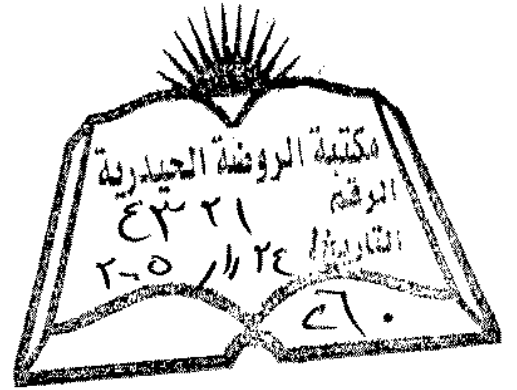 مكتبة الروضة الحيدرية
الرقم ٤٣٢١
التاريخ ٢٤ / / ٢٠٠٥